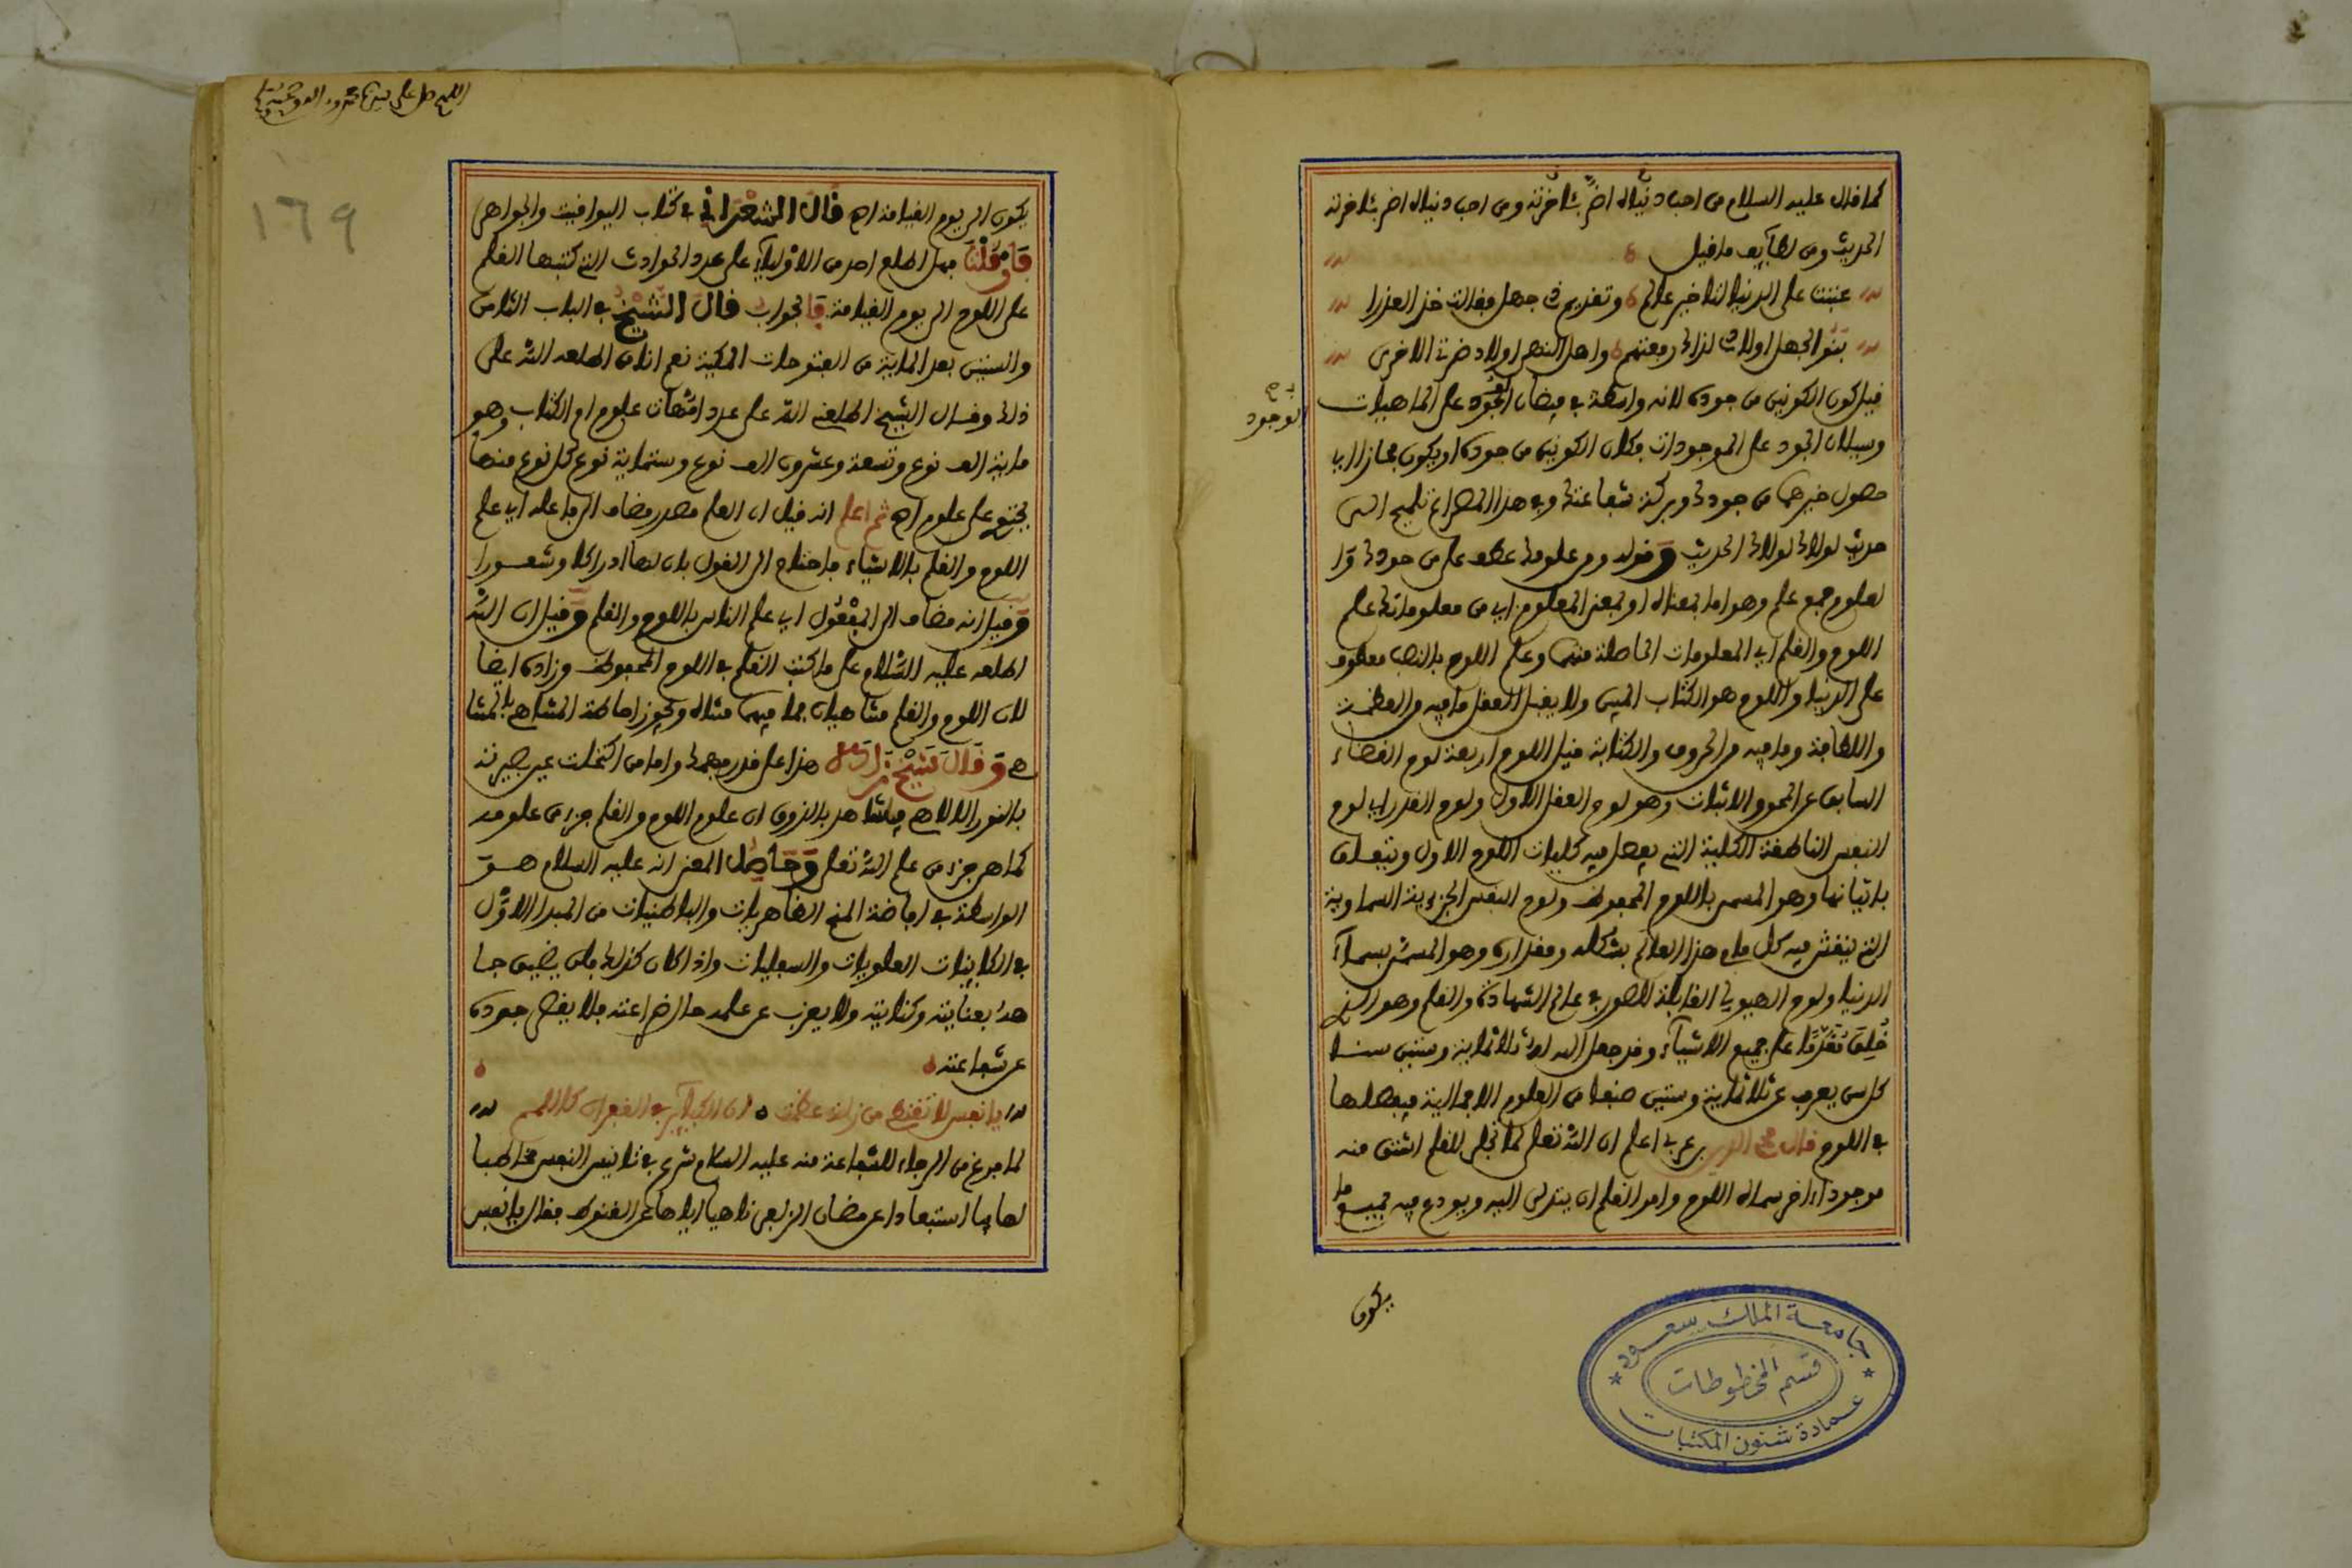 كما قال عليه السلام من احب دنياه اضر بئاخرته ومن احب دنياه اضر بئاخرته
الحديث ومن لطايف ما قيل
عتبت على الدنيا لتاخير عالم وتقديم ذي جهل فقالت خذ العذرا
بنو الجهل اولادي لذاك رفعتهم واهل النهى اولاد ضرتي الاخرى
قيل كون الكونين من جوده لانه واسطة في فيضان الجود على الماهيات
الوجود
وسيلان الجود على الموجودات فكان الكونين من جوده او يكون مجازا اي
حصول خيرهما من جودك وبركة شفاعتك وفي هذا المصراع تلميح الى
حديث لولاك لولاك الحديث وقوله ومن علومك عطف على من جودك وا
لعلوم جمع علم وهو اما بمعناه او بمعنى المعلوم اي من معلوماتك علم
اللوح والقلم اي المعلومات الحاصلة منهما وعلم اللوح بالنصب معطوف
على الدنيا واللوح هو الكتاب المبين ولا يقبل العقل ما فيه من العظمة
واللطافة وما فيه من الحروف والكتابة قيل اللوح اربعة لوح القضاء
السابق عن المحو والاثبات وهو لوح العقل الاول ولوح القدر اي لوح
النفس الناطقة الكلية التي يفصل فيه كليات اللوح الاول ويتعلق
باتيانها وهو المسمى باللوح المحفوظ ولوح النفس الجزءية السماوية
التي ينقش فيه كل ما في هذا العالم بشكله ومقداره وهو المسمى بسماء
الدنيا ولوح الهيولى القابلة للصور في عالم الشهادة والقلم وهو الذي
خلق تقدما على جميع الاشياء وقد جعل الله له ثلاثماية وستين سنا
كل سن يعرب عن ثلاثماية وستين صنفا من العلوم الاجمالية فيفصلها
في اللوح قال محي الدين بن عربي اعلم ان الله تعلى لما تجلى للقلم اشتق منه
موجودا اخر سماه اللوح وامر القلم ان يتدلى اليه ويودع فيه جميع ما
يكون
جامعة الملك سعود
قسم المخطوطات
عمادة شئون المكتبات
اللهم صل على سيدنا محمد وءاله وصحبه
١٦٩
يكون الى يوم القيامة اه قال الشعراني في كتاب اليواقيت والجواهر
فان قلنا فهل اطلع احد من الاولياء على عدد الحوادث التي كتبها القلم
على اللوح الى يوم القيامة فالجواب قال الشيخ في الباب الثامن
والستين بعد الماية من الفتوحات المكية نعم انا من اطلعه الله على
ذلك وقال الشيخ اطلعني الله على عدد امهات علوم ام الكتاب وهو
ماية الف نوع وتسعة وعشرون الف نوع وستماية نوع كل نوع منها
يحتوي على علوم اه ثم اعلم انه قيل ان العلم مصدر مضاف الى فاعله اي علم
اللوح والقلم بالاشياء فاحتاج الى القول بان لهما ادراكا وشعورا
وقيل انه مضاف الى المفعول اي علم الناس باللوح والقلم وقيل ان الله
اطلعه عليه السلام على ما كتب القلم في اللوح المحفوظ وزاده ايضا
لان اللوح والقلم متناهيان فما فيهما متناه ويجوز احاطة المتناهي بالمتنا
هي وقال شيخ زاده هذا على قدر فهمك واما من اكتحلت عين بصيرته
بالنور الالاهي فيشاهد بالذوق ان علوم اللوح والقلم جزء من علومه
كما هي جزء من علم الله تعلى وحاصل المعنى انه عليه السلام هو
الواسطة في افاضة المنح الظاهريات والباطنيات من المبدا الاول
في الكاينات العلويات والسفليات واذا كان كذلك فلن يضيق جا
هه بعنايته وكتابته ولا يعزب عن علمه حال ضراعته فلا يقصر جوده
عن شفاعته
يا نفس لا تقنطي من زلة عظمت ان الكباير في الغفران كاللمم
لما فرغ من الرجاء للشفاعة منه عليه السلام شرع في تانيس النفس مخاطبا
لها بها استبعادا عن مضان الزلفى ناهيا اياها عن القنوط فقال يا نفس